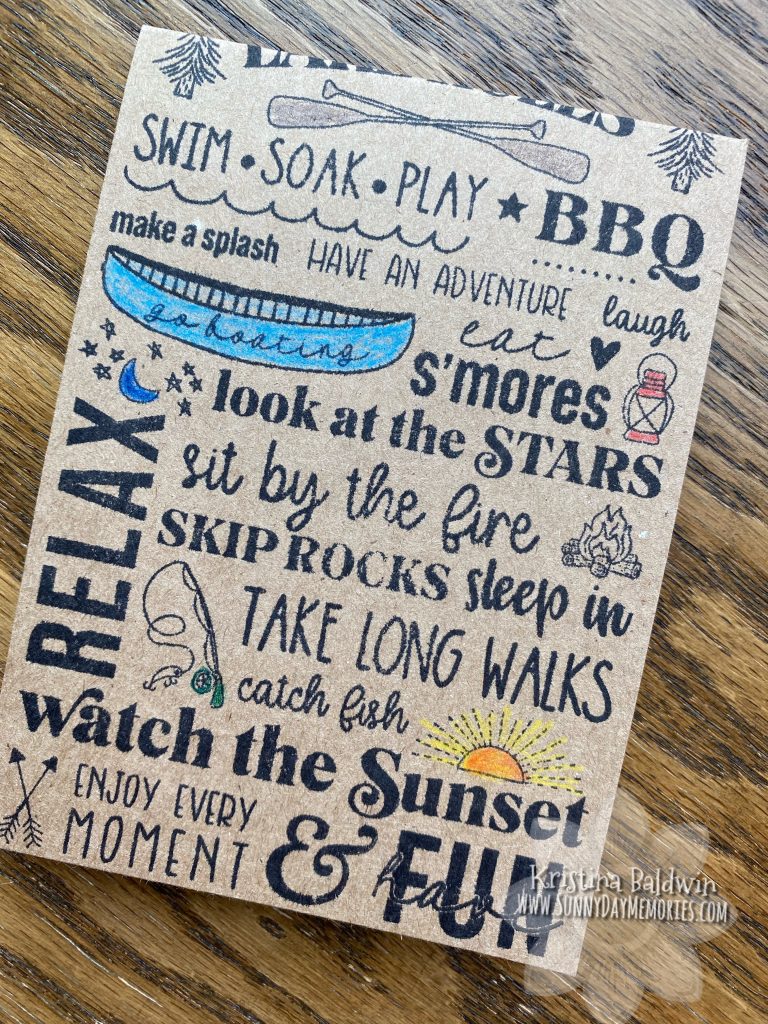 SWIM • SOAK • PLAY ★ BBQ
make a splash HAVE AN ADVENTURE laugh
go boating
eat
s'mores
look at the STARS
RELAX
sit by the fire
SKIP ROCKS sleep in
TAKE LONG WALKS
catch fish
watch the Sunset
ENJOY EVERY
MOMENT & have FUN
Kristina Baldwin
www.SunnyDayMemories.com